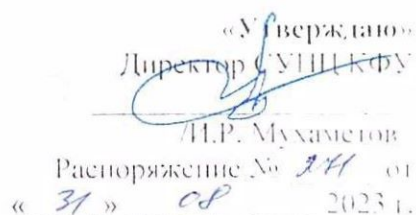 «Утверждаю»
Директор СУНЦ КФУ
/И.Р. Мухаметов
Распоряжение № 271 от
« 31 » 08 2023 г.